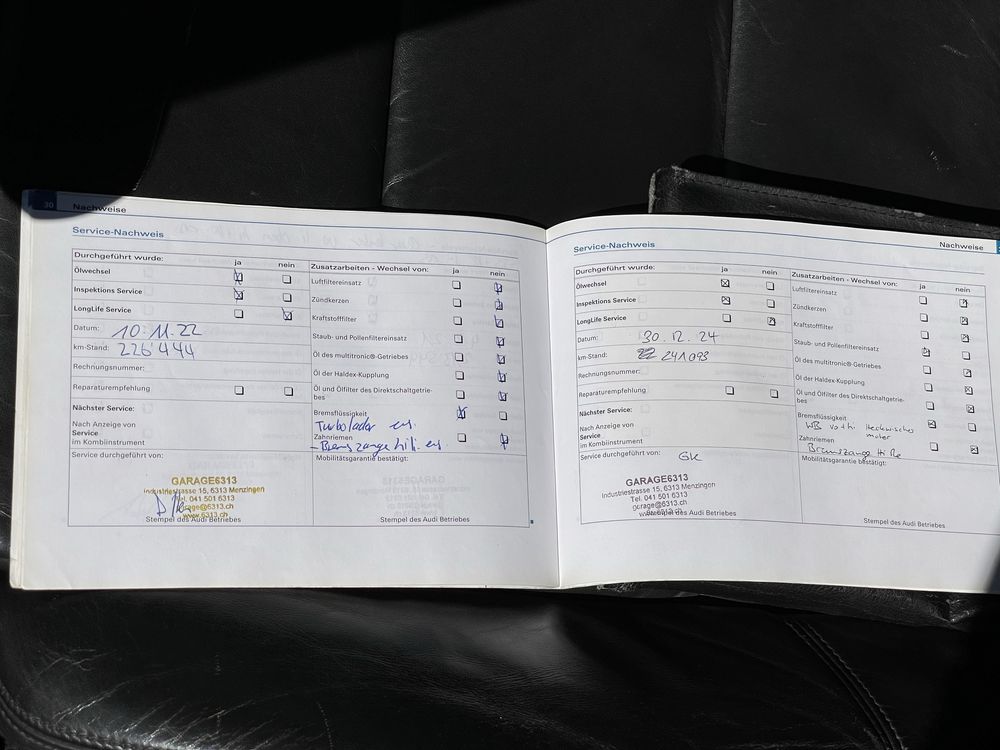 30 Nachweise
Service-Nachweis
Durchgeführt wurde: ja nein
Ölwechsel
Inspektions Service
LongLife Service
Datum: 10.11.22
km-Stand: 226'444
Rechnungsnummer:
Reparaturempfehlung
Nächster Service:
Nach Anzeige von
Service
im Kombiinstrument
Service durchgeführt von:
GARAGE6313
Industriestrasse 15, 6313 Menzingen
Tel. 041 501 6313
garage@6313.ch
www.6313.ch
Stempel des Audi Betriebes
Zusatzarbeiten - Wechsel von: ja nein
Luftfiltereinsatz
Zündkerzen
Kraftstofffilter
Staub- und Pollenfiltereinsatz
Öl des multitronic®-Getriebes
Öl der Haldex-Kupplung
Öl und Ölfilter des Direktschaltgetrie-
bes
Bremsflüssigkeit
Turbolader ers.
Zahnriemen
- Bremszange hi li ers.
Mobilitätsgarantie bestätigt:
Nachweise
Service-Nachweis
Durchgeführt wurde: ja nein
Ölwechsel
Inspektions Service
LongLife Service
Datum: 30.12.24
km-Stand: 241093
Rechnungsnummer:
Reparaturempfehlung
Nächster Service:
Nach Anzeige von
Service
im Kombiinstrument
Service durchgeführt von: GK
GARAGE6313
Industriestrasse 15, 6313 Menzingen
Tel. 041 501 6313
garage@6313.ch
www.6313.ch
Stempel des Audi Betriebes
Zusatzarbeiten - Wechsel von: ja nein
Luftfiltereinsatz
Zündkerzen
Kraftstofffilter
Staub- und Pollenfiltereinsatz
Öl des multitronic®-Getriebes
Öl der Haldex-Kupplung
Öl und Ölfilter des Direktschaltgetrie-
bes
Bremsflüssigkeit
Heckwischer
Zahnriemen
Bremszange Hi Re
Mobilitätsgarantie bestätigt:
Stempel des Audi Betriebes